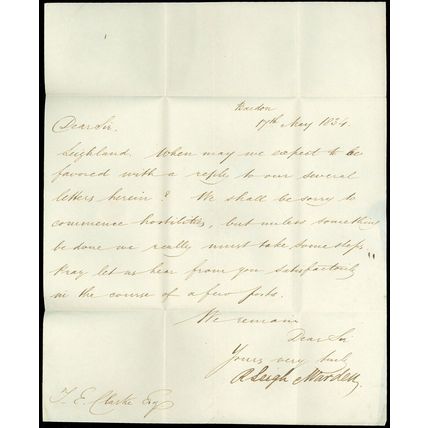 17th May 1834.
Dear Sir,
Leighland. When may we expect to be
favored with a reply to our several
letters herein? We shall be sorry to
commence hostilities, but unless something
be done we really must take some steps.
Pray let us hear from you satisfactorily
in the course of a few posts.
We remain
Dear Sir
Yours very truly
Leigh
T. E. Clarke Esq